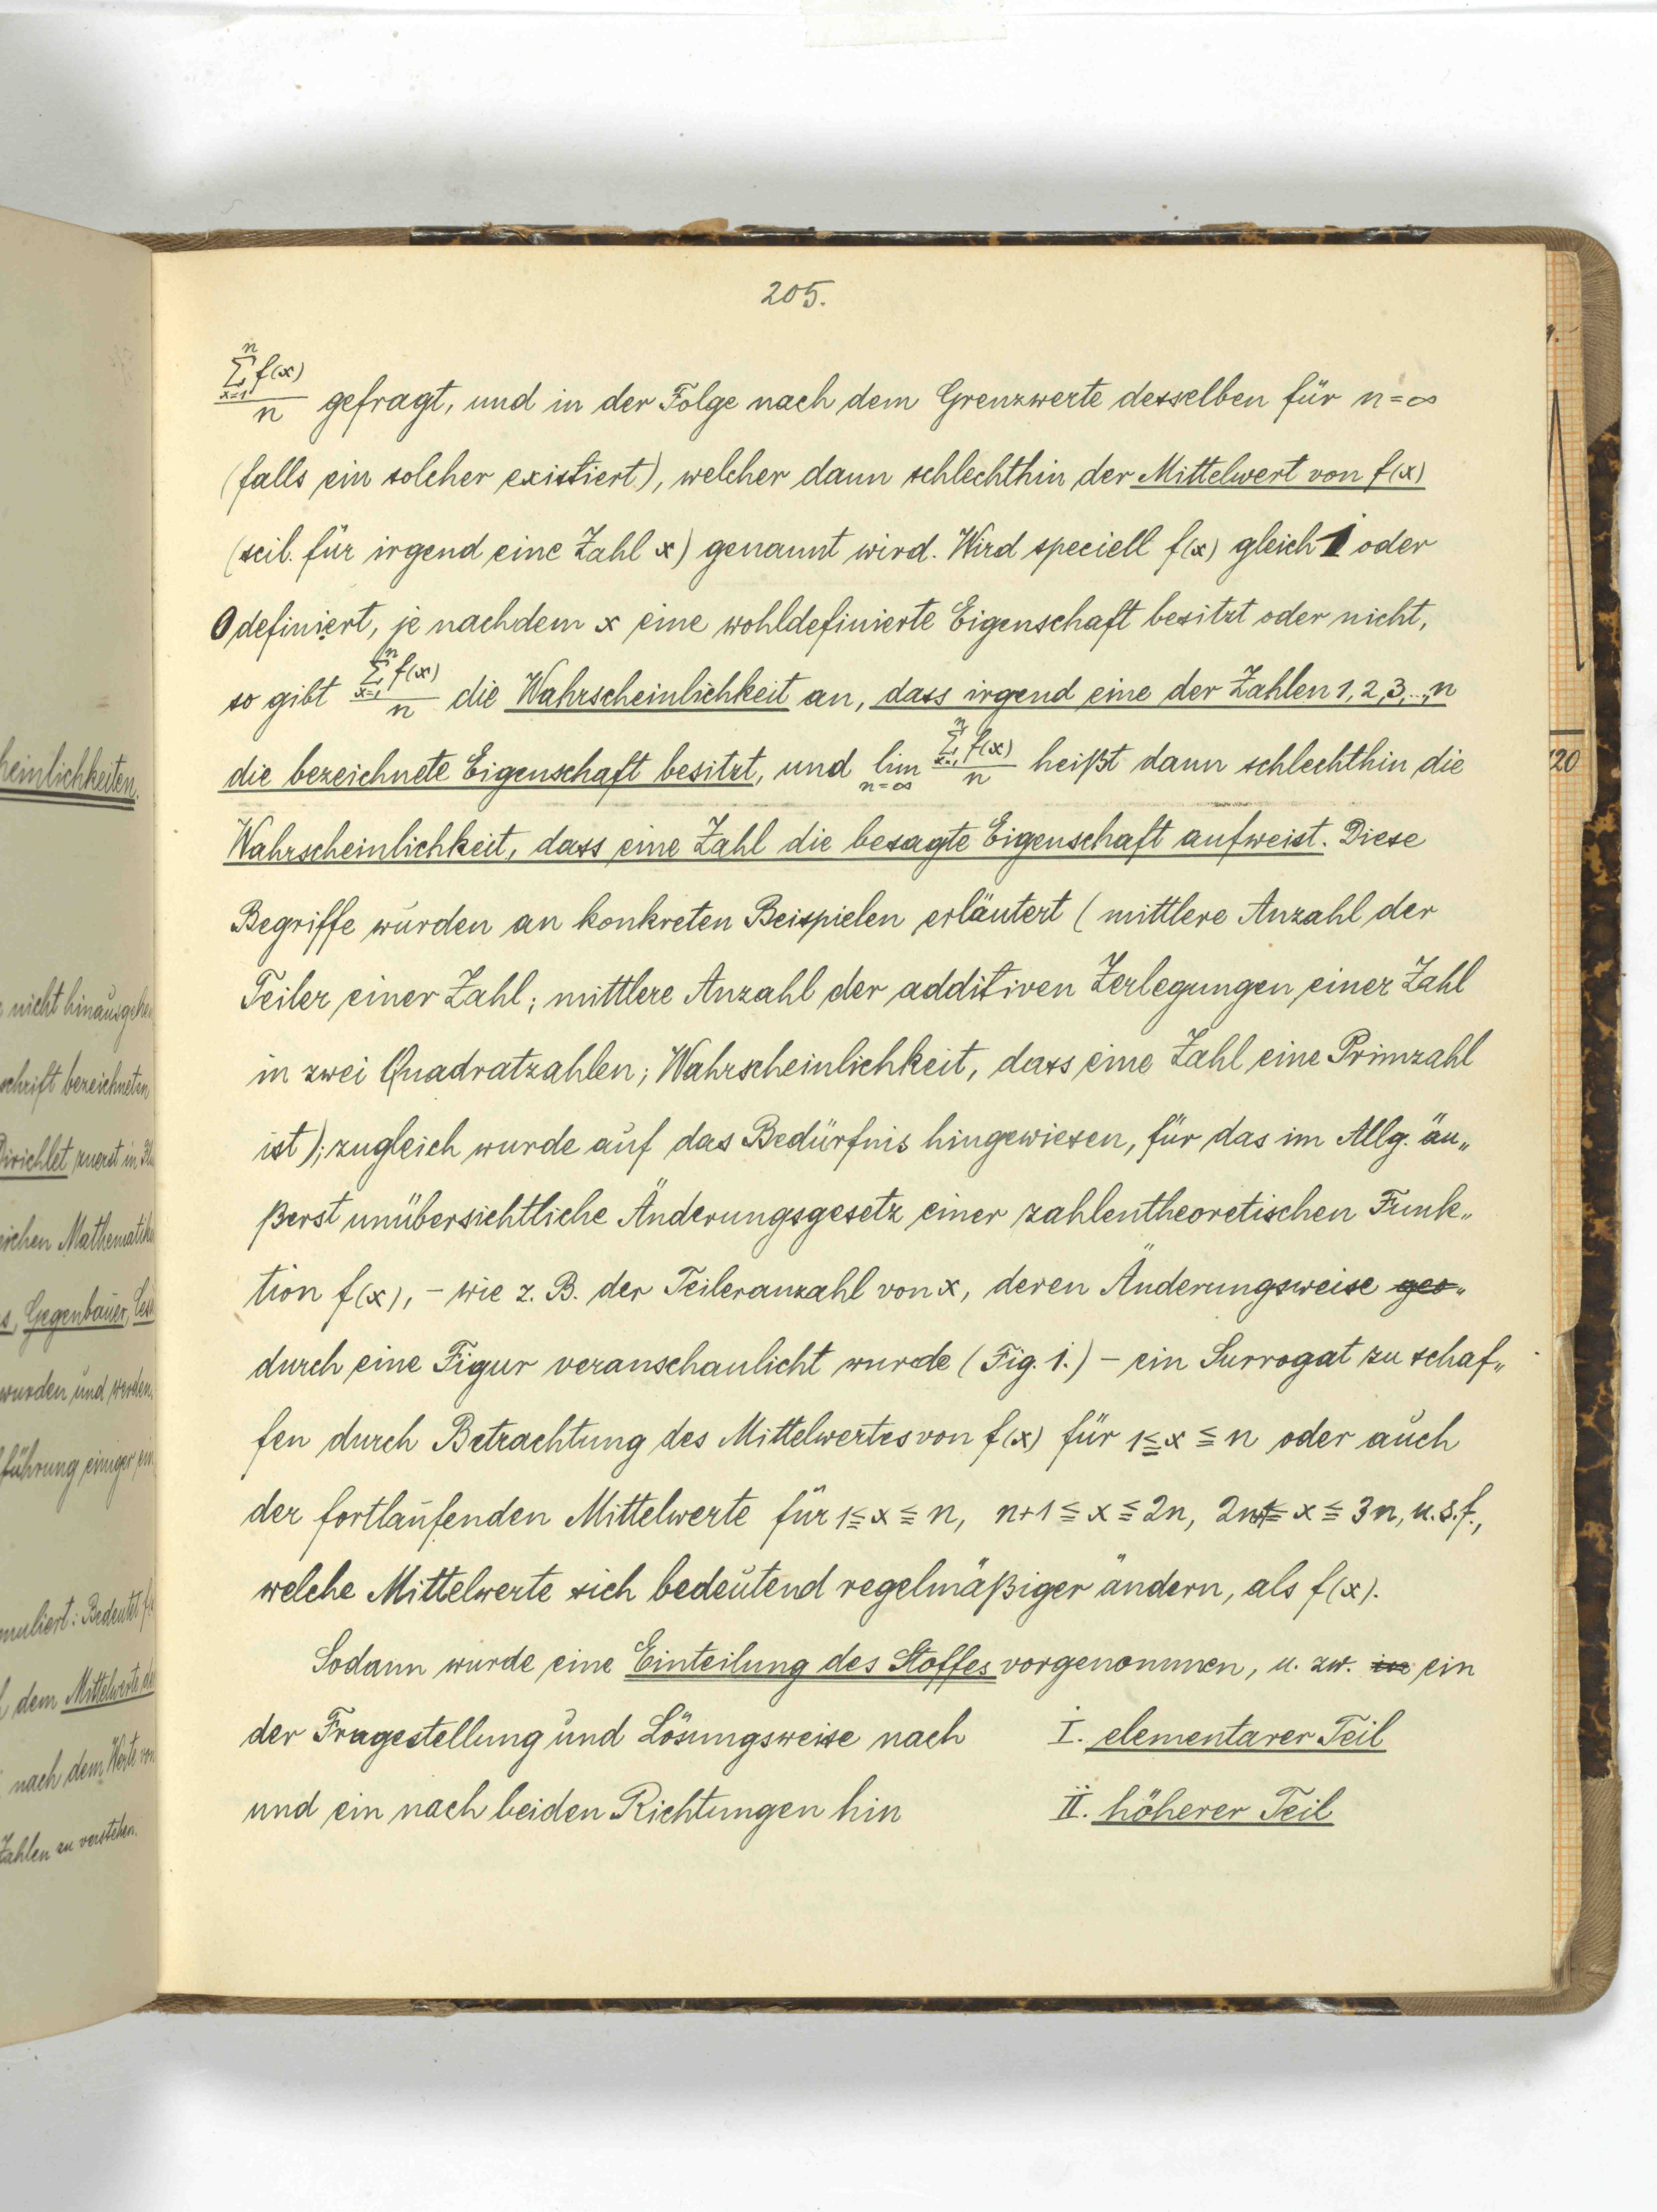 heinlichkeiten.
nicht hinausgehe
schrift bezeichneten
Dirichlet zuerst in
eichen Mathematike
s, Gegenbauer, Ces
wurden und werden.
führung einiger ein
muliert: Bedeutet f
dem Mittelwerte de
nach dem Werte von
Zahlen zu verstehen.
205.
\frac{\sum_{x=1}^{n} f(x)}{n} gefragt, und in der Folge nach dem Grenzwerte desselben für n=∞
(falls ein solcher existiert), welcher dann schlechthin der Mittelwert von f(x)
(scil. für irgend eine Zahl x) genannt wird. Wird speciell f(x) gleich 1 oder
0 definiert, je nachdem x eine wohldefinierte Eigenschaft besitzt oder nicht,
so gibt \frac{\sum_{x=1}^{n} f(x)}{n} die Wahrscheinlichkeit an, dass irgend eine der Zahlen 1, 2, 3, ..., n
die bezeichnete Eigenschaft besitzt, und \lim_{n=∞} \frac{\sum_{x=1}^{n} f(x)}{n} heißt dann schlechthin die
Wahrscheinlichkeit, dass eine Zahl die besagte Eigenschaft aufweist. Diese
Begriffe wurden an konkreten Beispielen erläutert (mittlere Anzahl der
Teiler einer Zahl; mittlere Anzahl der additiven Zerlegungen einer Zahl
in zwei Quadratzahlen; Wahrscheinlichkeit, dass eine Zahl eine Primzahl
ist); zugleich wurde auf das Bedürfnis hingewiesen, für das im Allg. äu„
ßerst unübersichtliche Änderungsgesetz einer zahlentheoretischen Funk„
tion f(x), – wie z. B. der Teileranzahl von x, deren Änderungsweise ges„
durch eine Figur veranschaulicht wurde (Fig. 1.) – ein Surrogat zu schaf„
fen durch Betrachtung des Mittelwertes von f(x) für 1≦x≦n oder auch
der fortlaufenden Mittelwerte für 1≦x≦n, n+1≦x≦2n, 2n+1≦x≦3n, u.s.f.,
welche Mittelwerte sich bedeutend regelmäßiger ändern, als f(x).
Sodann wurde eine Einteilung des Stoffes vorgenommen, u. zw. in ein
der Fragestellung und Lösungsweise nach I. elementarer Teil
und ein nach beiden Richtungen hin II. höherer Teil
120